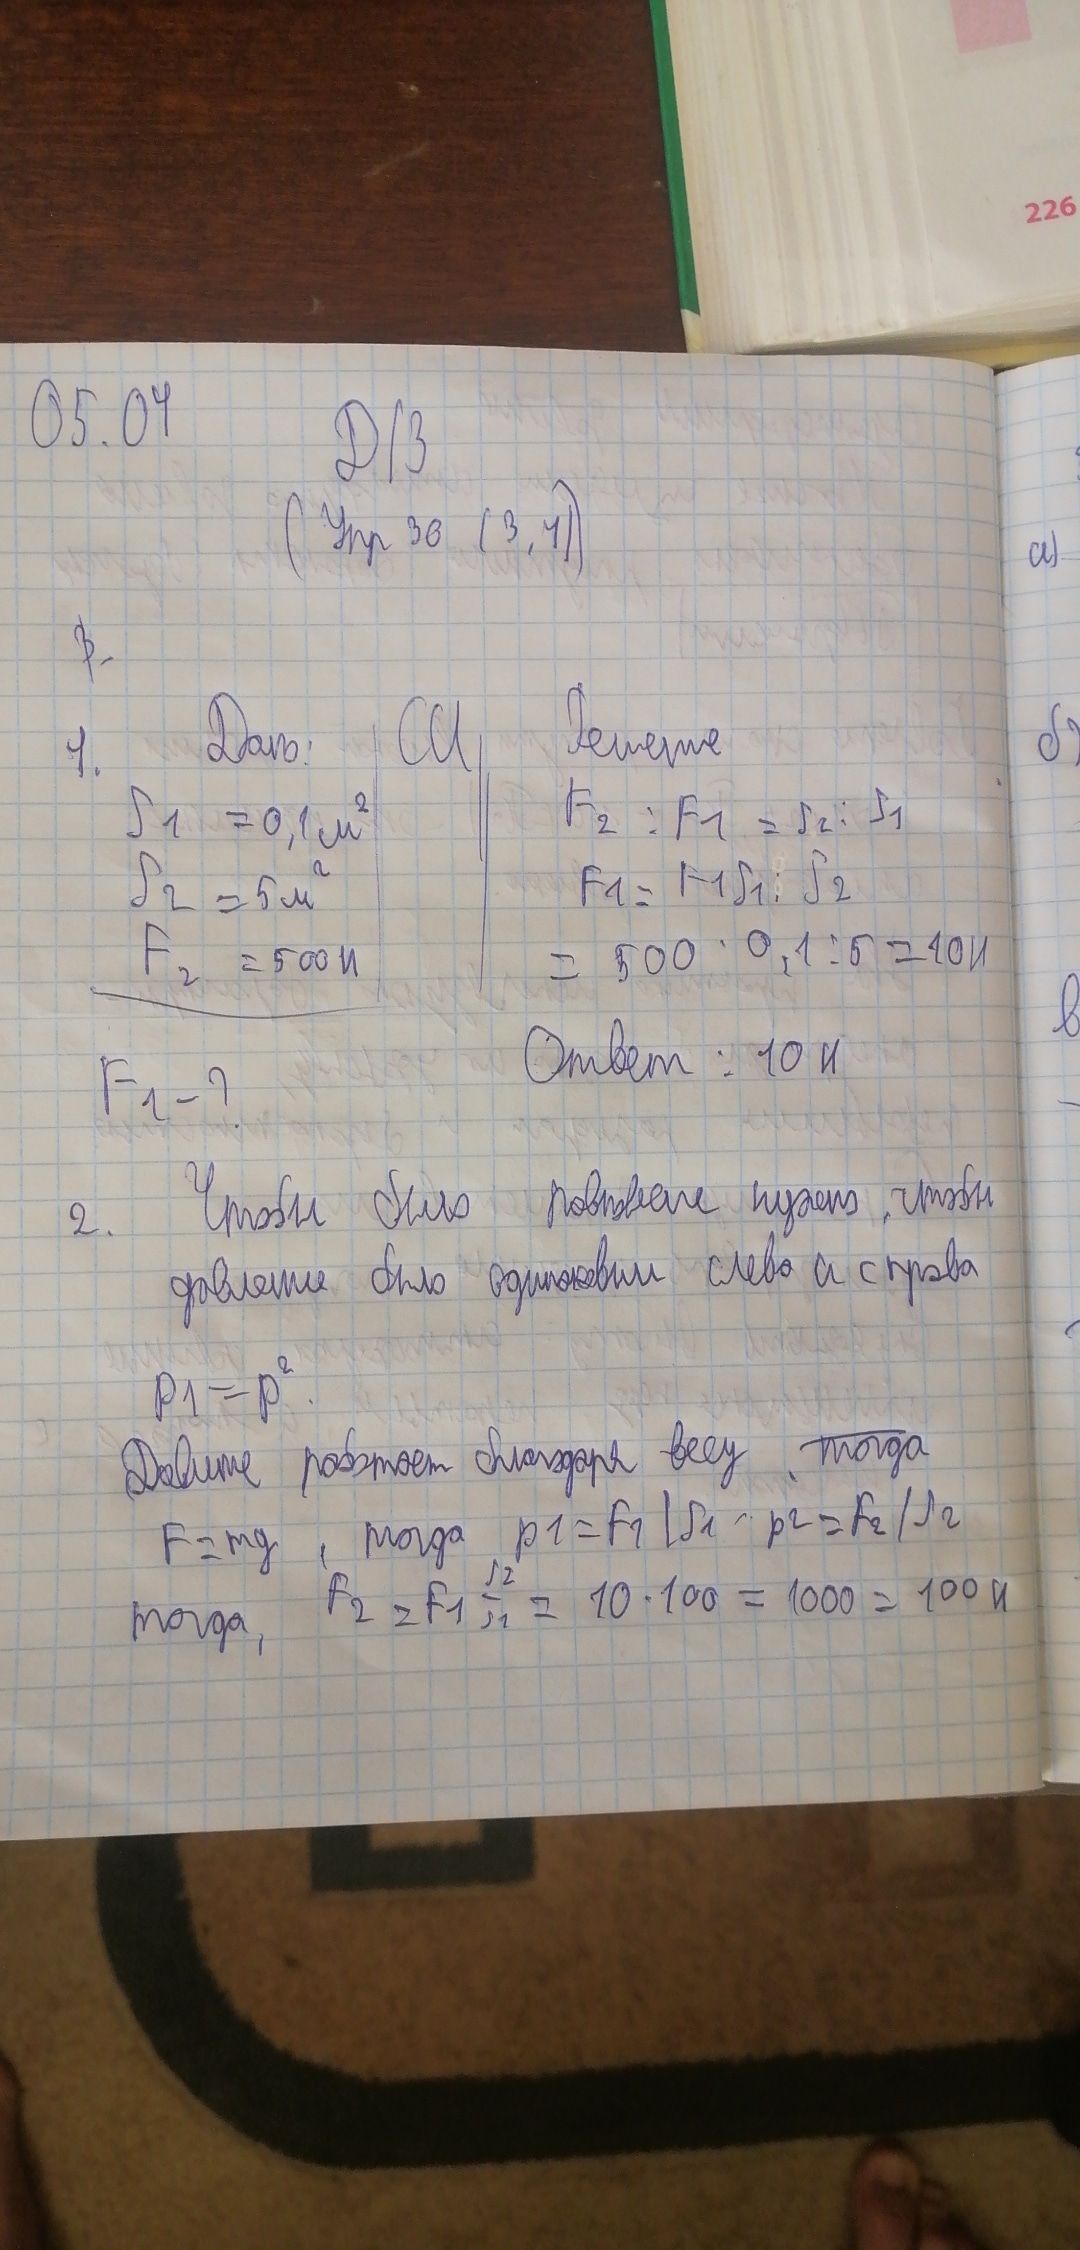 226
05.04
Д/З
(Упр 36 (3,4))
3.
1. Дано: СИ Решение
S1 = 0,1 м² F2 : F1 = S2 : S1
S2 = 5 м² F1 = F1S1 : S2
F2 = 500 Н = 500 · 0,1 : 5 = 10 Н
F1 - ? Ответ : 10 Н
2. Чтобы было равновесие нужно, чтобы
давление было одинаковым слева и справа
p1 = p².
работает благодаря весу, тогда
F = mg , тогда p1 = F1/S1 - p2 = F2/S2
тогда, F2 = F1 S2/S1 = 10 · 100 = 1000 = 100 Н
а)
б)
в